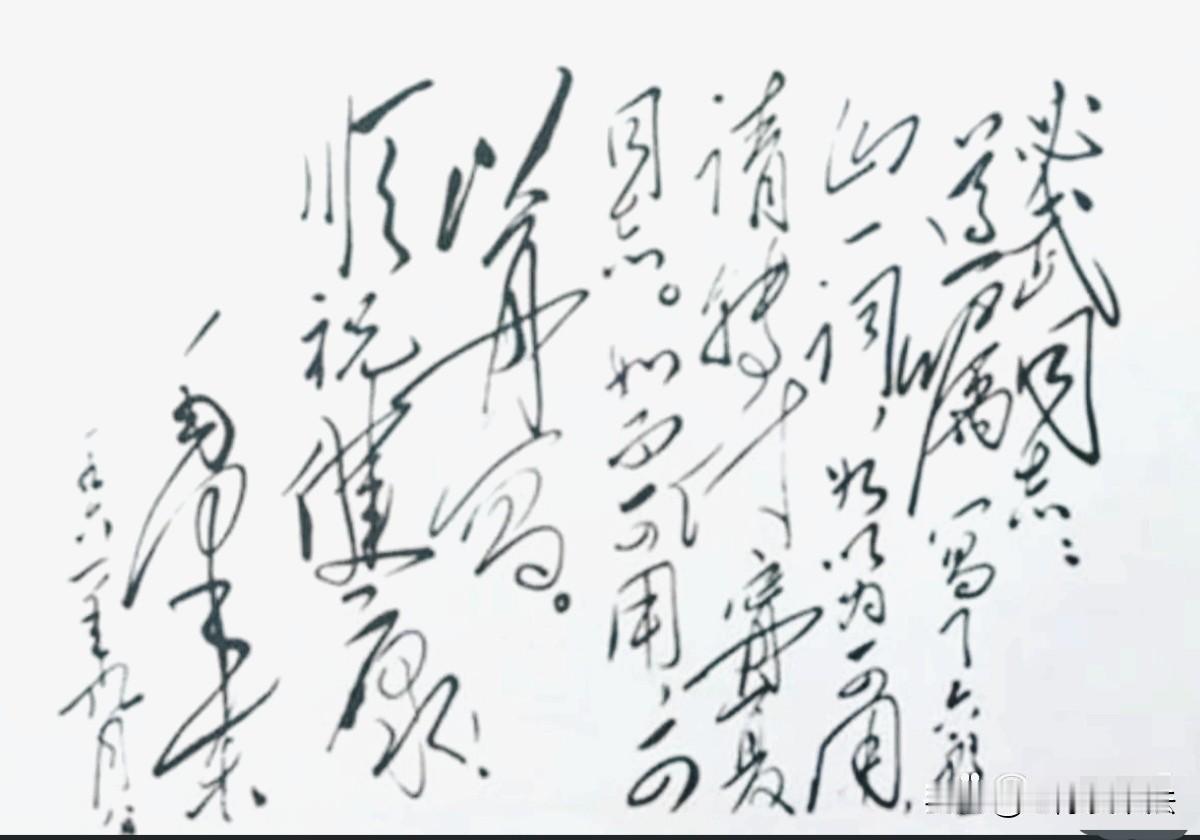 必武同志：
遵嘱写了六盘
山一词，如以为可用，
请转付宁夏
同志。如不可用，可
以再写。
顺祝健康！
毛泽东
一九六一年九月八日